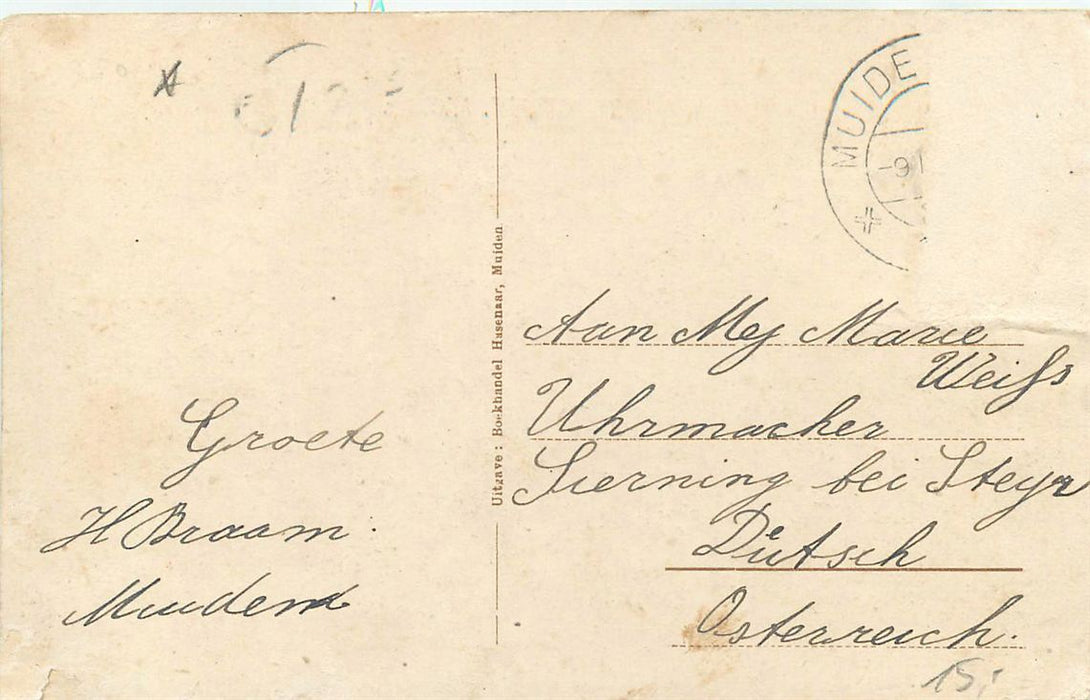 MUIDE
-9
Groete
H Braam.
Muiden
Uitgave: Boekhandel Hasenaar, Muiden.
Aan Mej Marie
Weiſs
Uhrmacher
Sierning bei Steyr
Dütsch
Osterreich.
15.-